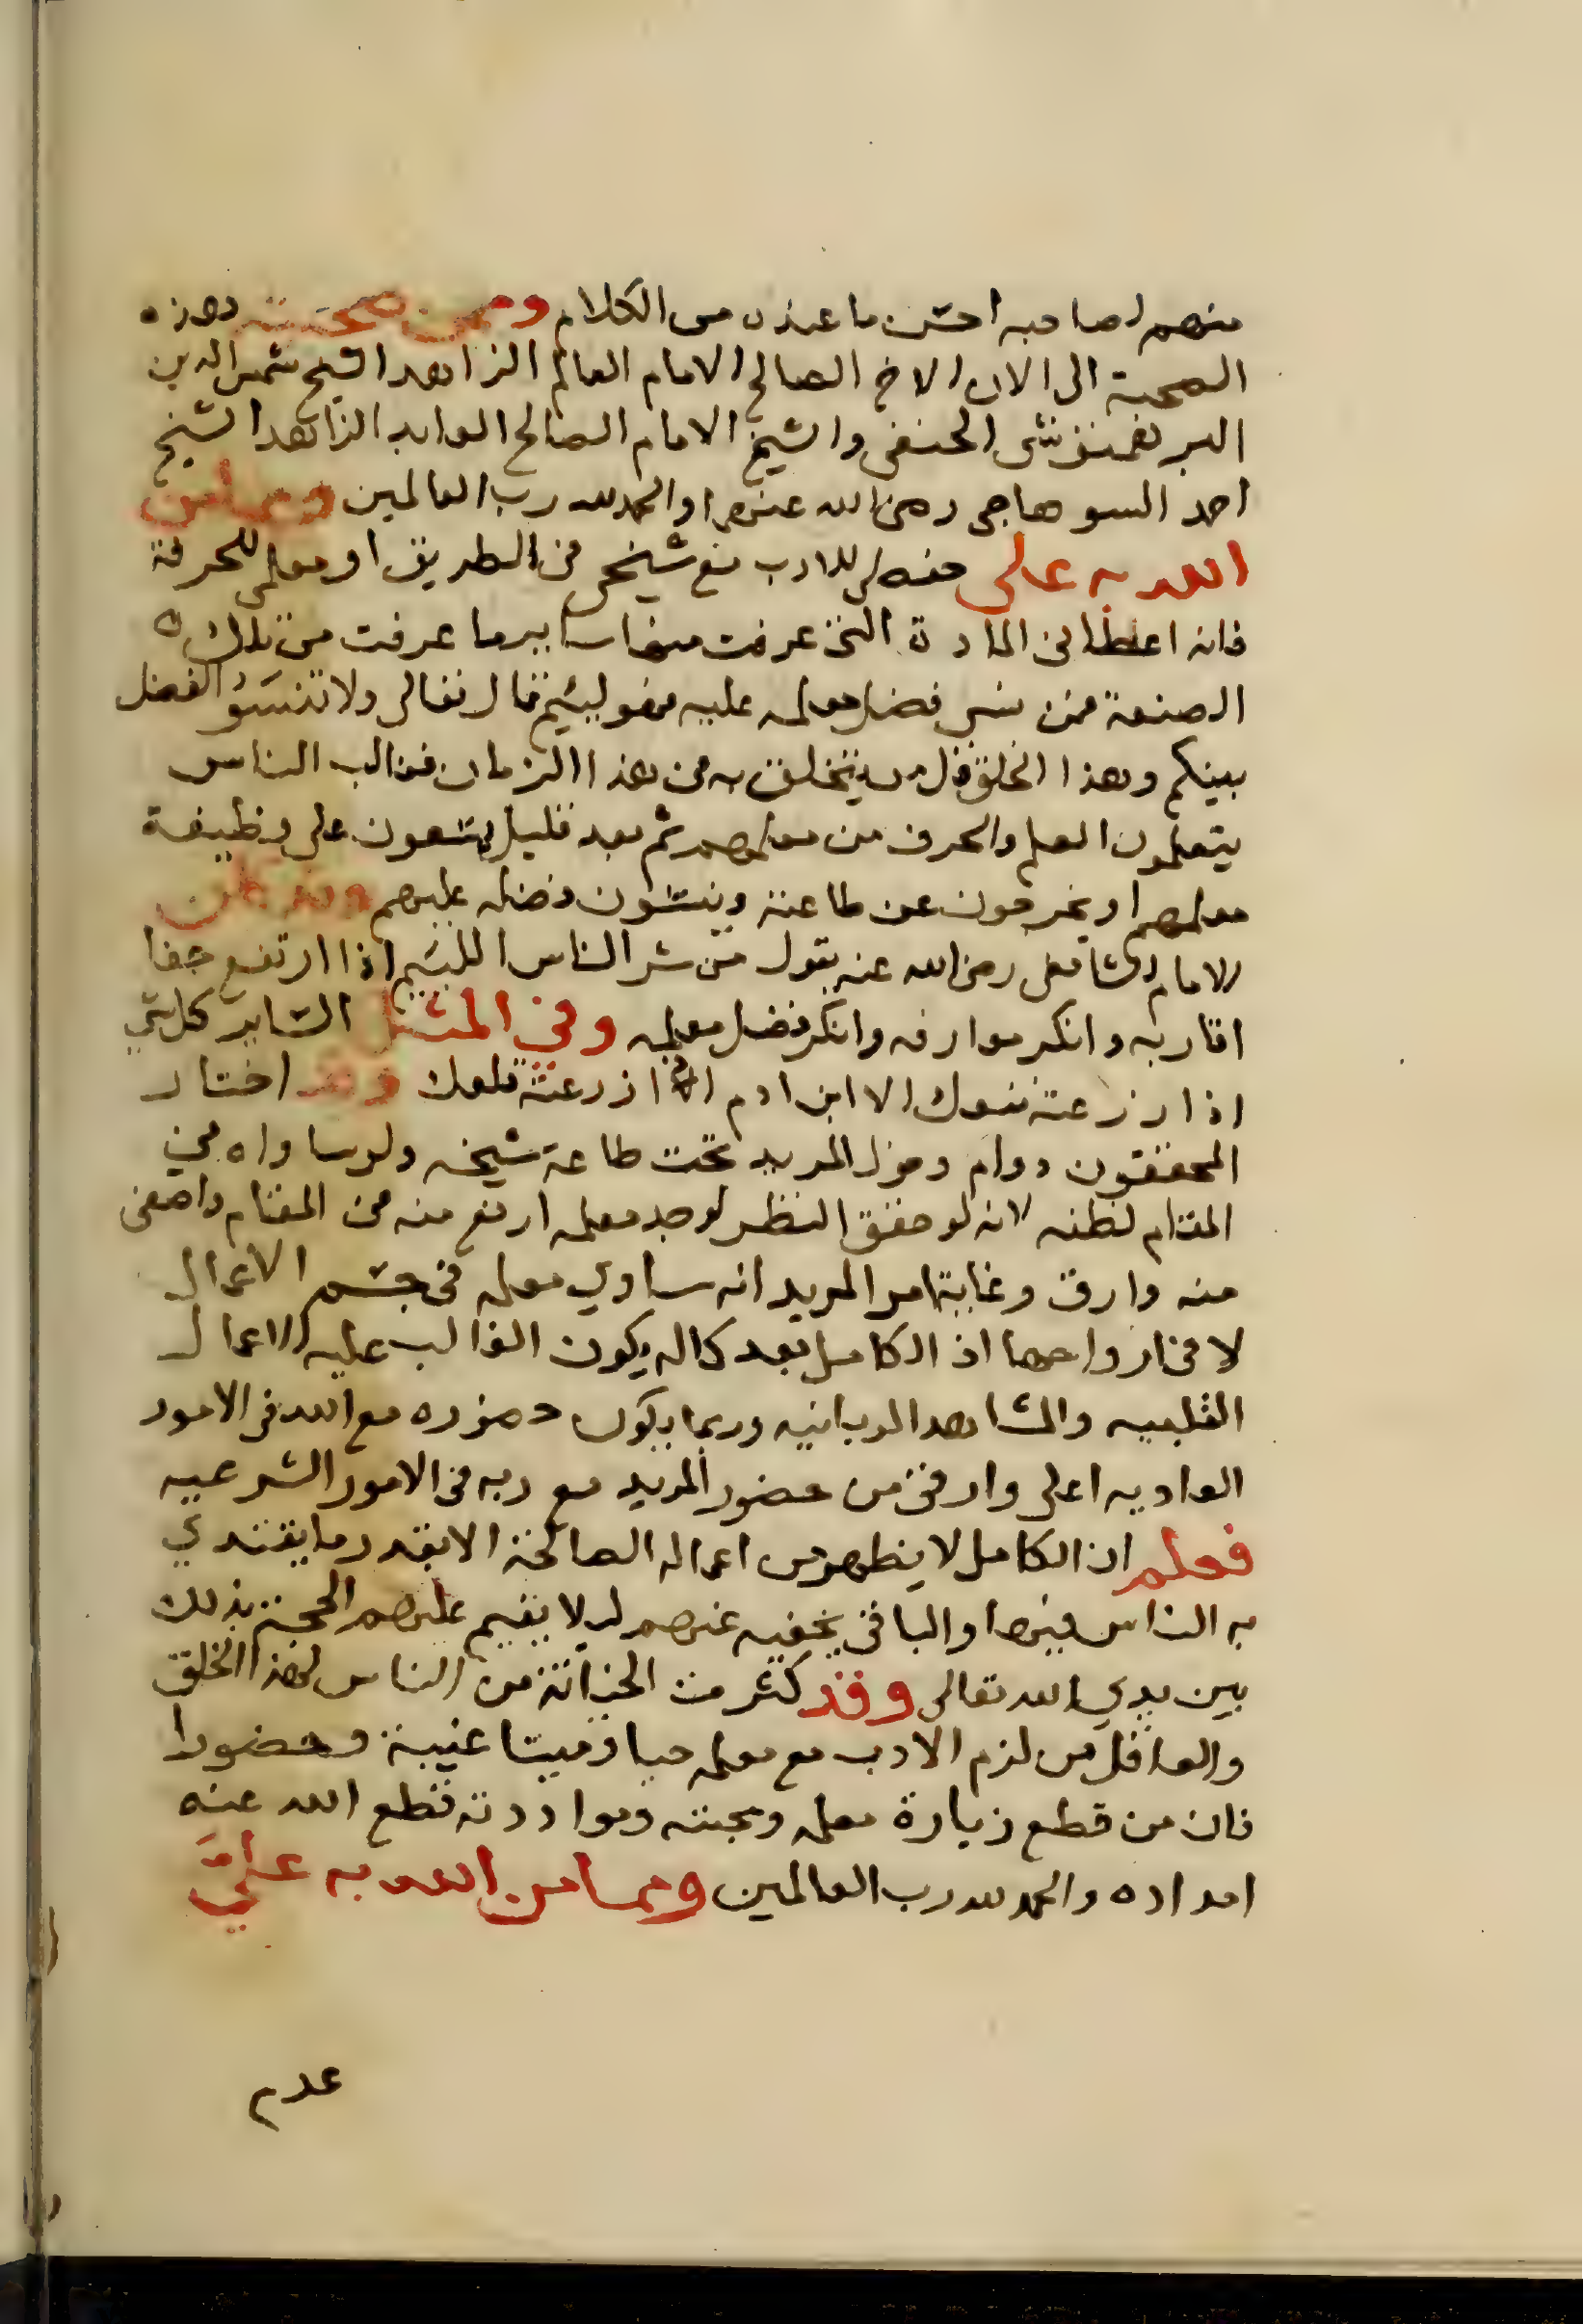 منهم لصاحبه احسن ما عنده من الكلام وممن صحبته هذه
الصحبة الى الان الاخ الصالح الامام العالم الزاهد الشيخ شمس الدين
البرهمتوشى الحنفى والشيخ الامام الصالح العابد الزاهد الشيخ
احمد السوهاجى رضى الله عنهما والحمد لله رب العالمين ومما من
الله به على حفظى للادب مع شيخى فى الطريق او معلمى للحرفة
فانه اعطانى المادة التى عرفت منها ساير ما عرفت من تلك
الصنعة فمن نسى فضل معلمه عليه فهو لييم قال تعالى ولا تنسَوُا الفضل
بينكم وهذا الخلق قل من يتخلق به فى هذا الزمان فغالب الناس
يتعلمون العلم والحرف من معلمهم ثم بعد قليل يسعون على وظيفة
معلمهم او يخرجون عن طاعته وينسون فضله عليهم وقد كان
الامام الشافعى رضى الله عنه يقول من شر الناس اللييم اذا ارتفع جفا
اقاربه وانكر معارفه وانكر فضل معلمه وفى المثل الساير كل شي
اذا زرعته نفعك الا ابن ادم اذا زرعته قلعك وقد اختار
المحققون دوام دخول المريد تحت طاعة شيخه ولو ساواه فى
المقام لظنه لانه لو حقق النظر لوجد معلمه ارفع منه فى المقام واصفى
منه وارق وغاية امر المريد انه ساوي معلمه فى جسم الاعمال
لا فى ارواحها اذ الكامل بعد كماله يكون الغالب عليه الاعمال
القلبيه والمشاهد الربانيه وربما يكون حضوره مع الله فى الامور
العاديه اعلى وارقى من حضور المريد مع ربه فى الامور الشرعيه
فعلم ان الكامل لا يظهر من اعماله الصالحة الا بقدر ما يقتدي
به الناس فيها والباقى يخفيه عنهم ليلا يقيم عليهم الحجة بذلك
بين يدي الله تعالى وقد كثرت الخيانة من الناس لهذا الخلق
والعاقل من لزم الادب مع معلمه حيا وميتا غيبة وحضورا
فان من قطع زيارة معلمه ومحبته وموادد ته قطع الله عنه
امداده والحمد لله رب العالمين ومما من الله به علىَّ
عدم